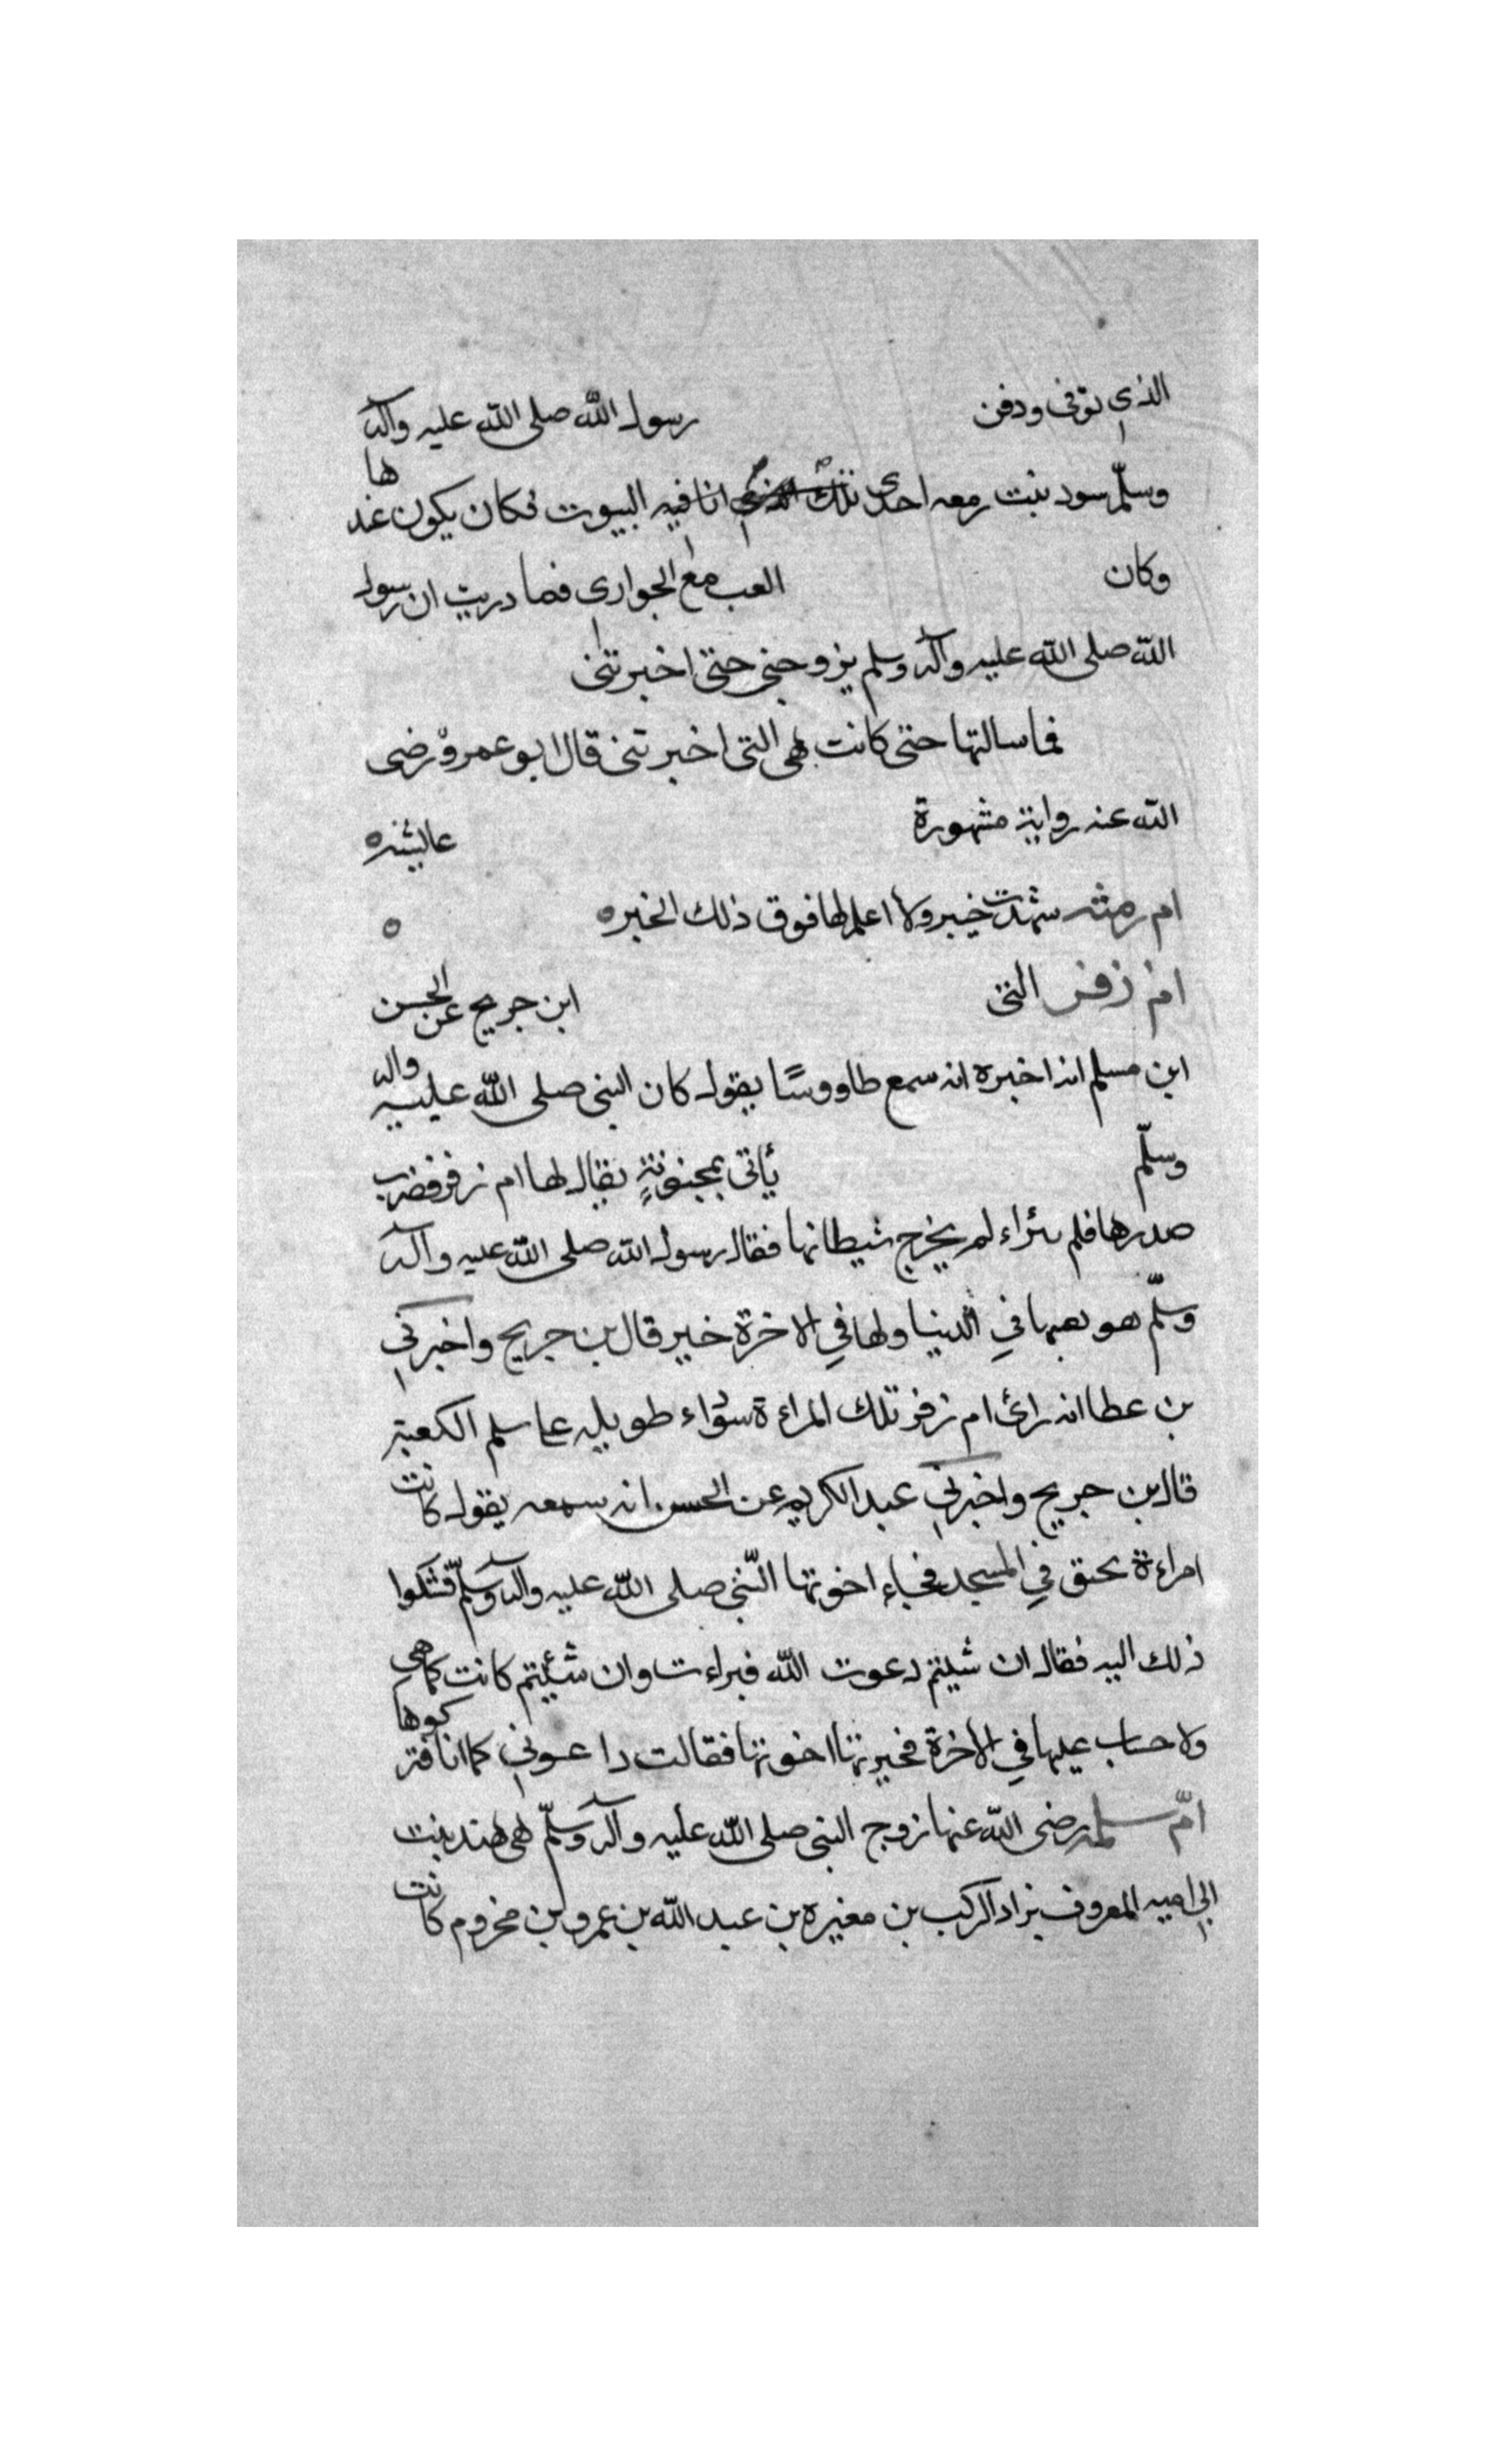 الذي توفى ودفن رسول الله صلى الله عليه وآله
وسلّم سود بنت زمعه احدى تلك انا فيه البيوت فكان يكون عندها
وكان العب مع الجواري فما دريت ان رسول
الله صلى الله عليه وآله وسلم يزوجنى حتى اخبرتنى
فما سالتها حتى كانت هى التى اخبرتنى قال ابو عمرو رضى
الله عنه رواية مشهورة عايشه
ام رمثه شهدت خيبر ولا اعلم لها فوق ذلك الخبر ه ه
ام زفر التى ابن جريج عن الحسن
ابن مسلم انه اخبره انه سمع طاووسًا يقول كان النبى صلى الله عليه واله
وسلّم يأتى بمجنونةٍ يقال لها ام زفر فضرب
صدرها فلم لم يخرج شيطانها فقال رسول الله صلى الله عليه وآله
وسلّم هو في الدنيا ولها في الاخرة خير قال بن جريج واخبرني
بن عطا انه رائ ام زفر تلك المراءة سوداء طويله على سلم الكعبة
قال بن جريج واخبرني عبد الكريم عن الحسن انه سمعه يقول كانت
امراءة في المسجد فجاء اخوتها النبى صلى الله عليه واله وسلّم فشكوا
ذلك اليه فقال ان شيتم دعوت الله فبراءت وان شئيتم كانت كما هى
ولا حساب عليها في الاخرة فخيرتها اخوتها فقالت دا عوني كما انا فتركوها
امّ سلمه رضى الله عنها زوج النبى صلى الله عليه وآله وسلّم هى هند بنت
ابي اميه المعروف بزاد الركب بن مغيره بن عبد الله بن عمرو بن مخزوم كانت